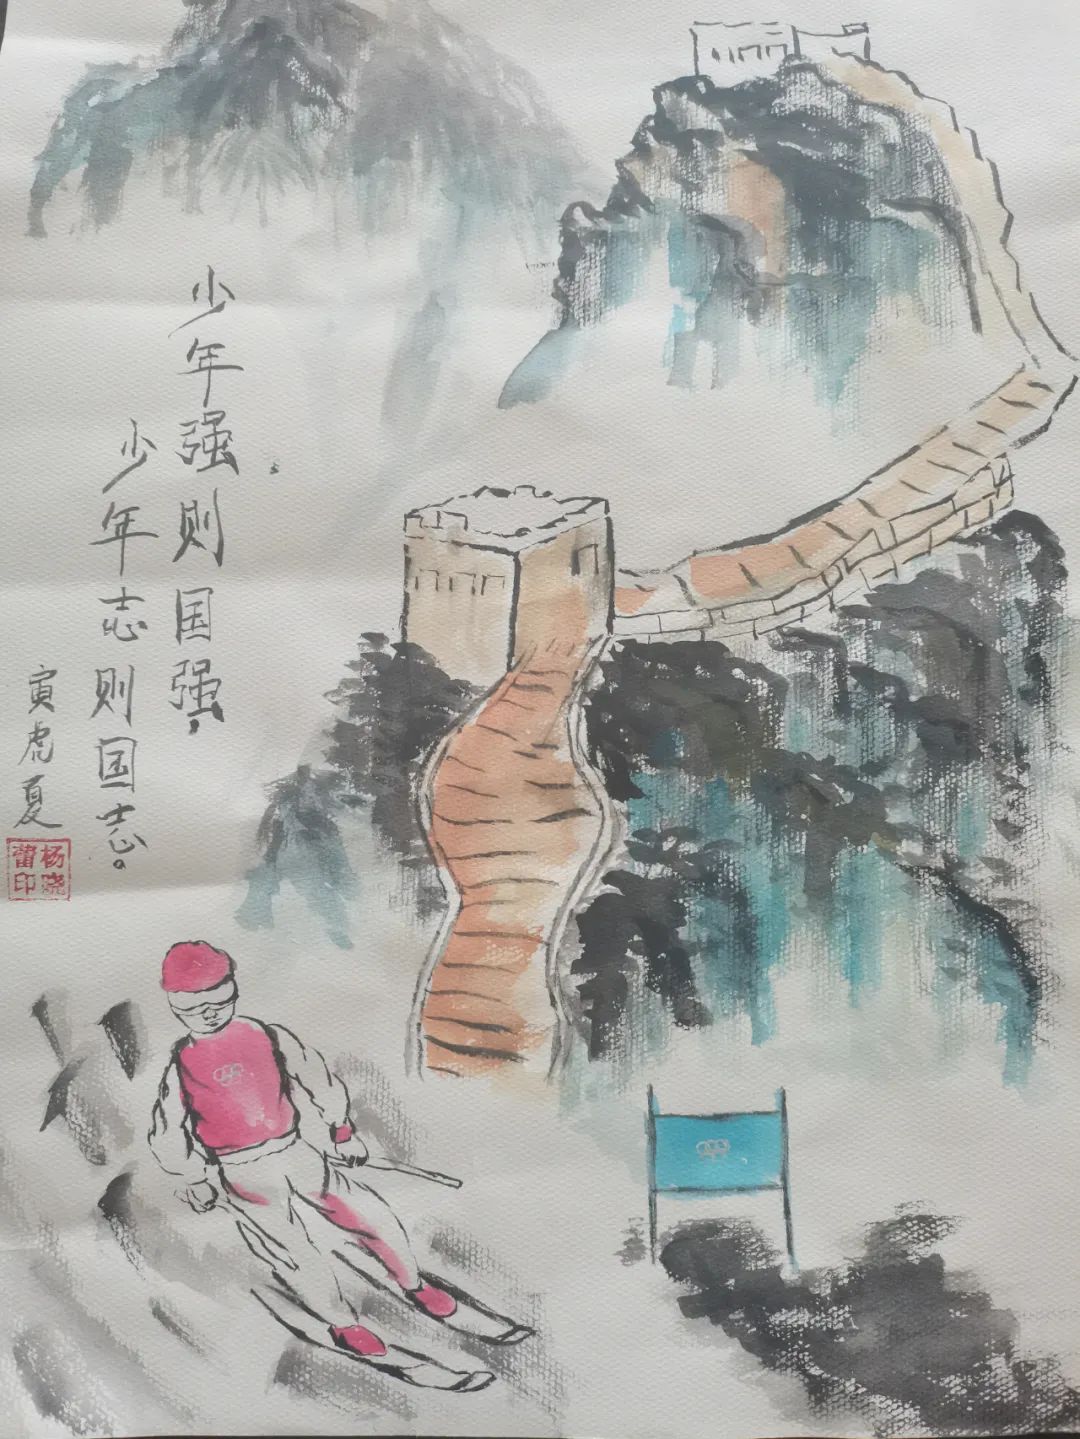 少年强则国强，
少年志则国志。
寅虎夏
杨晓蕾印